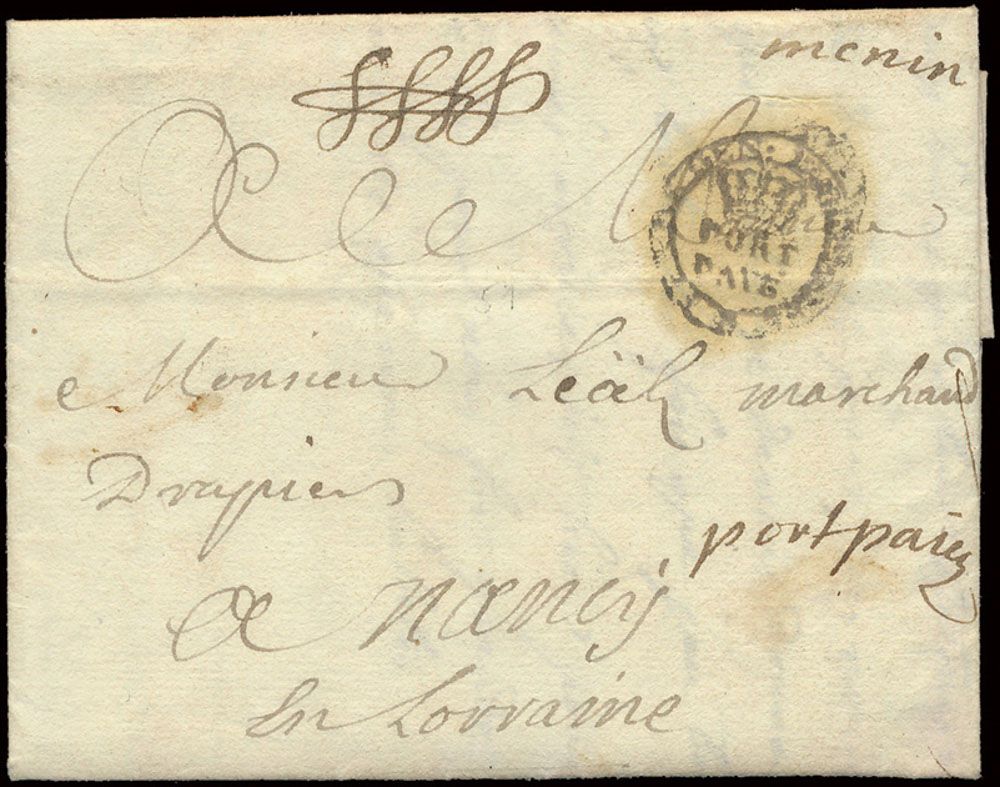 menin
A Monsieur
PORT
PAYE
51
Monsieur Leäl marchand
Drapier
portpaiez
a nancij
En Lorraine